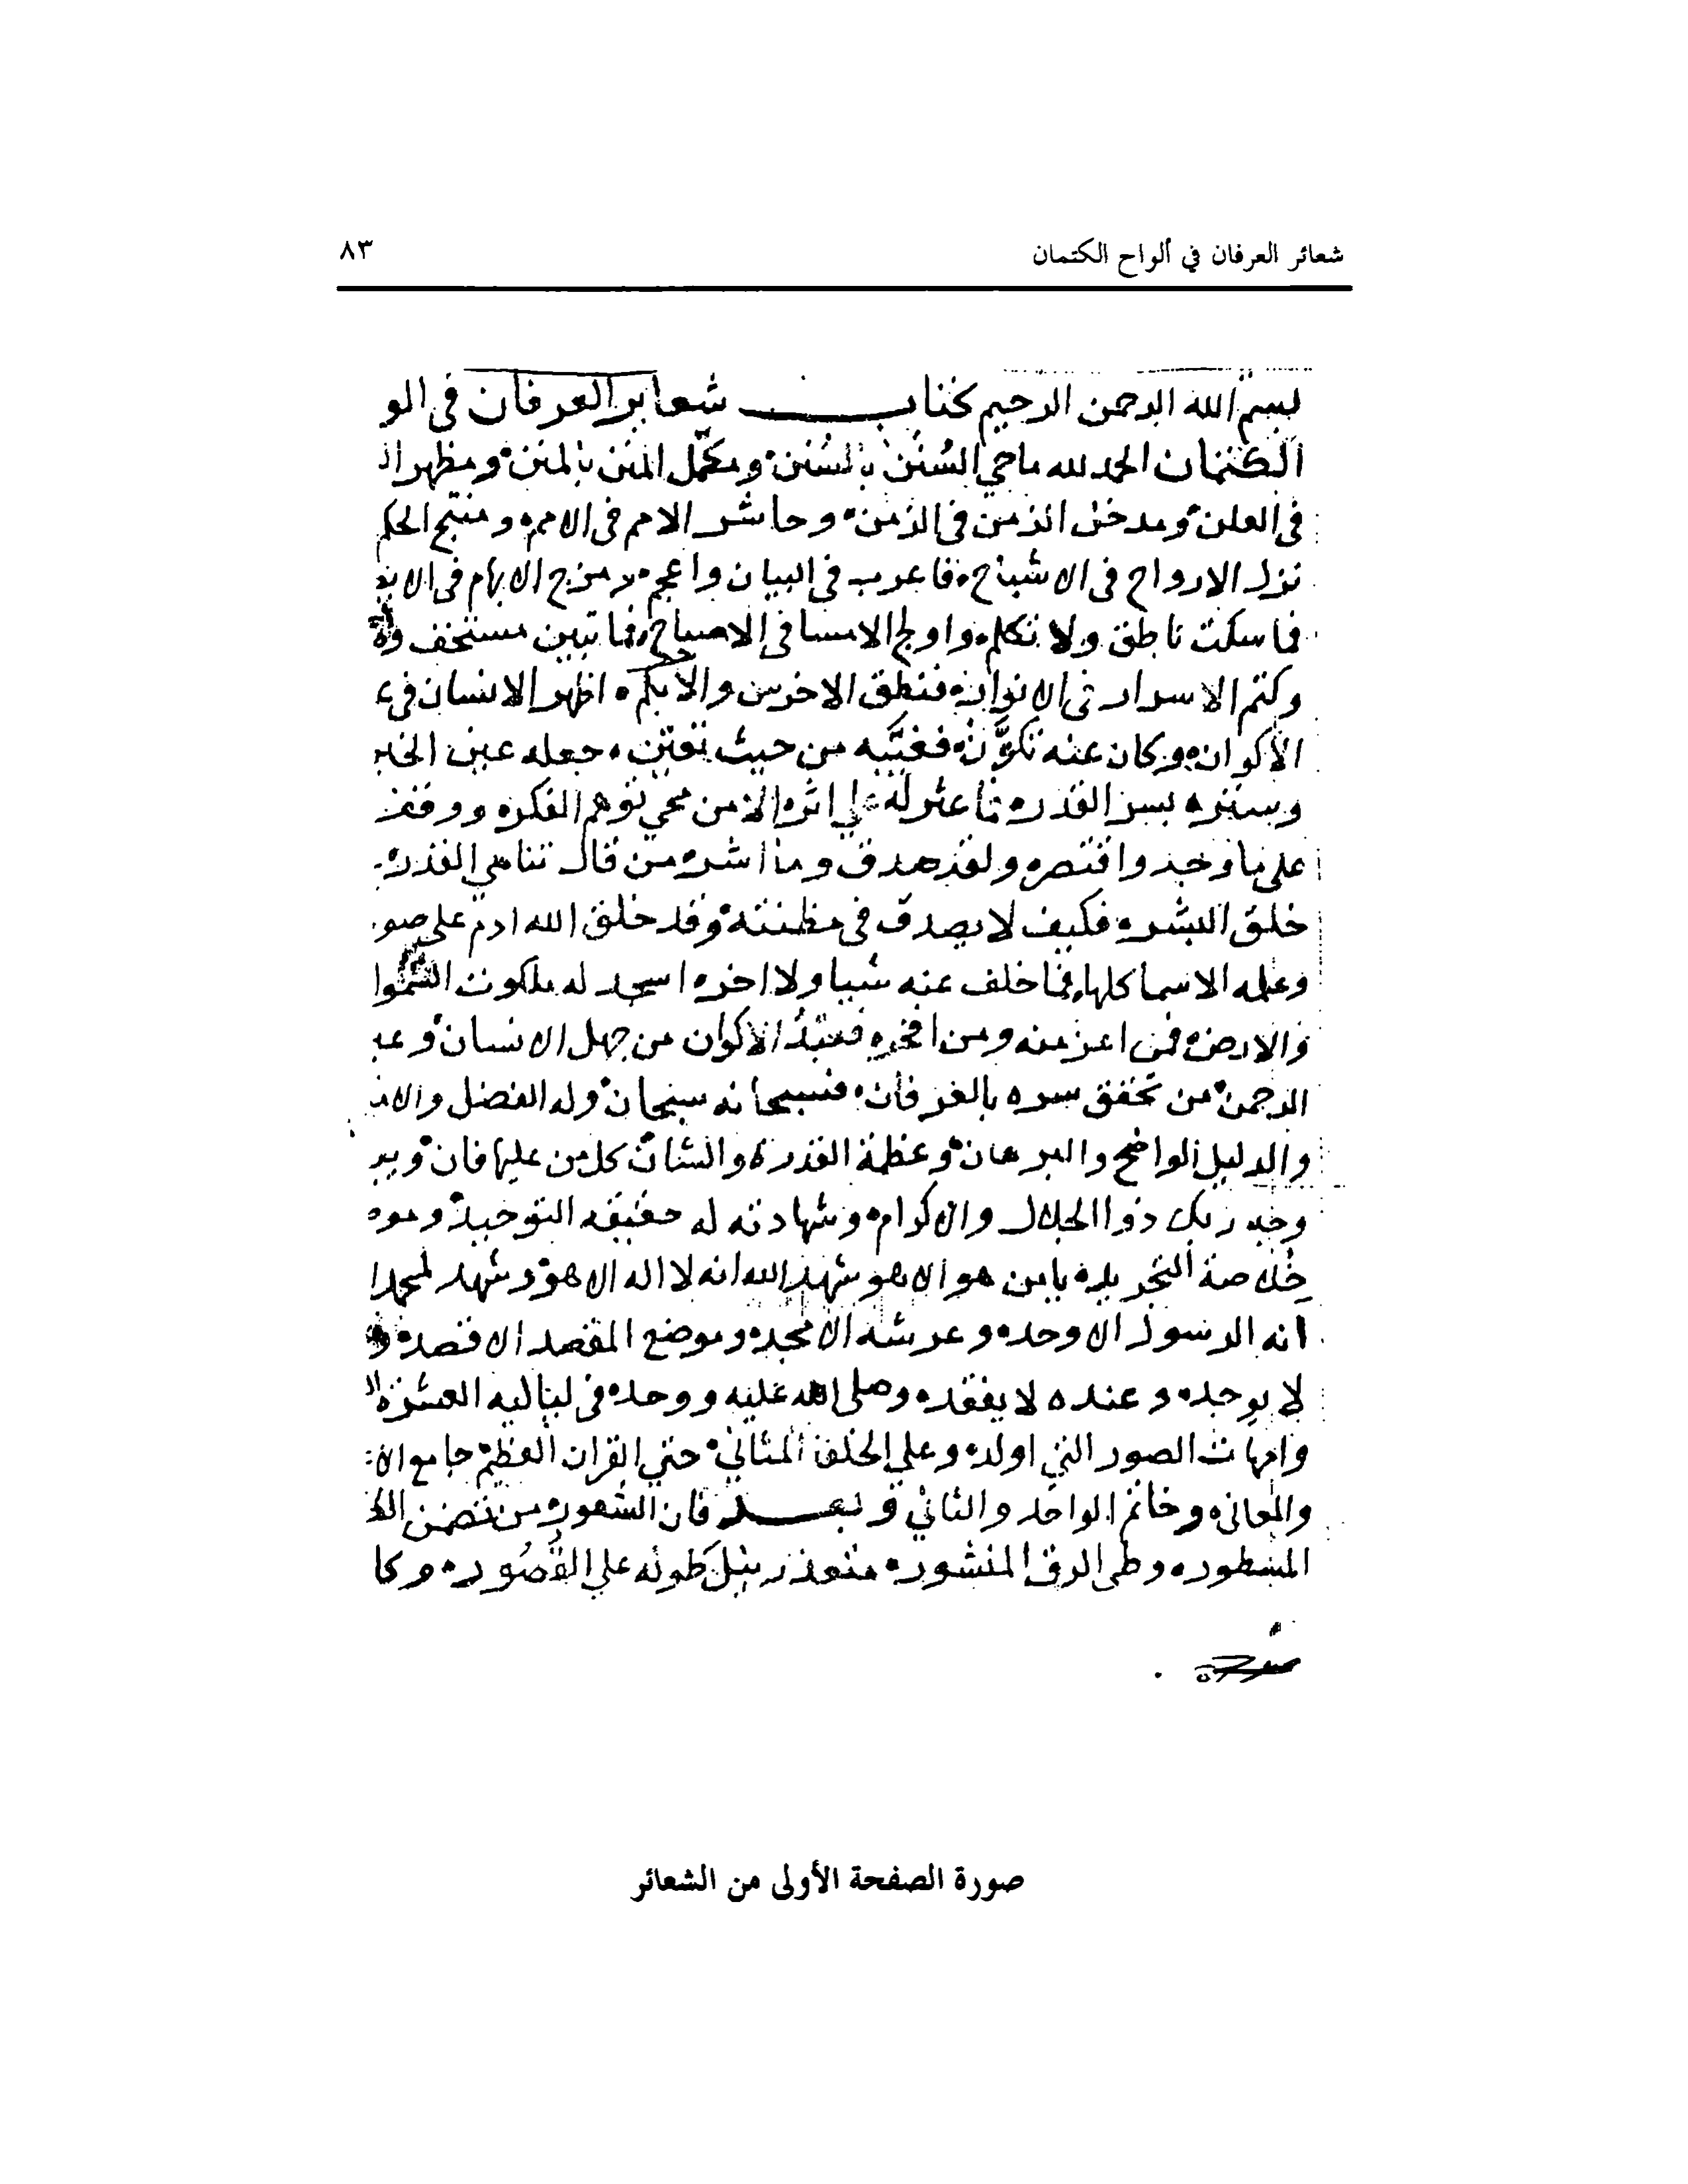 شعائر العرفان في ألواح الكتمان ٨٣
بسم الله الرحمن الرحيم كتاب شعاير العرفان في الو
الكتمان الحمد لله ماحي السنن بالسنن ومكمل المنن بالمنن ومظهر ا
في العلن ومدخل الزمن في الزمن وحاشر الامم في الامم ومنتج الحكم
نزل الارواح في الاشباح فاعرب في البيان واعجم ومزج الابهام في الا
فما سكت ناطق ولا تكلم واولج الامسا في الاصباح فما تبين مستخف
وكتم الاسرار في الانوار فنطق الاخرس والابكم اظهر الانسان في
الأكوان وكان عنه تكون فغيبه من حيث تعين جعله عين الخبر
وستره بسر القدر فما عثر له على اثر الا من محي توهم الفكر ووقف
على ما وجد واقتصر ولقد صدق وما اشر من قال تناهي القدر
خلق البشر فكيف لا يصدق في مظنته وقد خلق الله ادم على صو
وعلمه الاسما كلها فما خلف عنه شيا ولا اخر اسجد له ملكوت السموا
والارض فمن اعز منه ومن افخر فسيد الاكوان من جهل الانسان وعبد
الرحمن من تحقق سره بالعرفان فسبحانه سبحان وله الفضل والا
والدليل الواضح والبرهان وعظمة القدرة والشان كل من عليها فان ويبـ
وجه ربك ذوا الجلال والاكرام وشهادته له حقيقه التوحيد ومو
خلاصة التجريد باين هو الا هو شهد الله انه لا اله الا هو وشهد لمحمد ا
انه الرسول الاوحد وعرشه الامجد وموضع المقصد الاقصد
لا يوجد وعنده لا يفقد وصلى الله عليه ووحده في لياليه العشر
وامهات الصور التي اولد وعلى الخلف المثاني حتي القران العظيم جامع الا
والمعاني وخاتم الواحد والثاني وبعد فان الشعور من تضمن
المسطور وطي الرق المنشور متعذر نيل طوله علي القصور وكا
صورة الصفحة الأولى من الشعائر